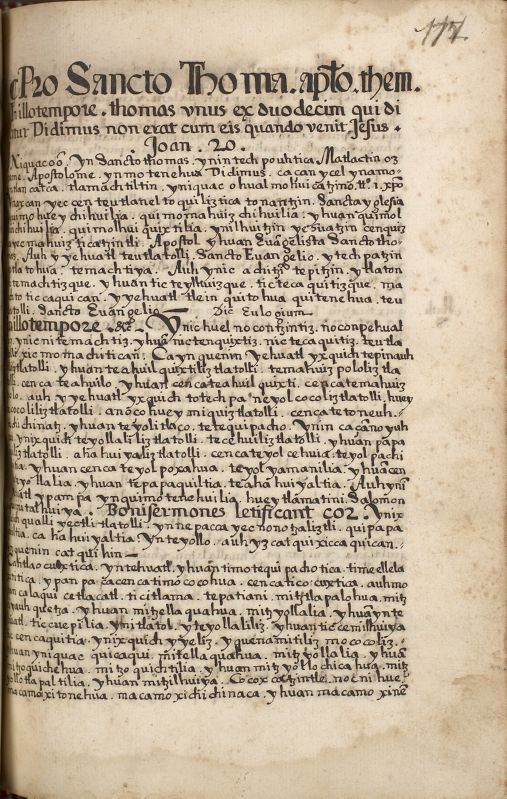 117
Pro Sancto Thoma. apto. them.
illotempore. thomas vnus ex duodecim qui di
Didimus non erat cum eis quando venit Jesus.
Joan. 20.
Yn sancto thomas. ynin tech pouhtica Matlactin oz
Apostolome. yn mo tenehua Didimus. ca can ycel ynamo-
catca. tlamachtiltin. yniquac o hual mo hui catzino. tto. i. xpo
can yec cen teutlanel to quiliztica to nantzin. sancta yglesia
mo huey chihuilia. qui mo mahuiz chihuilia. yhuan quimol
chihuilia. qui molhui quix tilia. ynilhuitzin yesuatzin cenquiz
ca mahuiz ticatzintli. Apostol yhuan Euangelista sancto tho-
mas. Auh yyehuatl teutlatolli. Sancto Euangelio. ytech patzin
tlatohua. temachtiya. Auh ynic achitzin tepitzin. ytlaton
temachtizque. yhuan tic teylhuizque. tic teca quitizque. ma
to tic caquican. yyehuatl tlein qui tohua qui tenehua. teu
tlatolli. sancto Euangelio. Dic Eulogium.
illotempore. &c. Ynic huel no confintiz. no conpehual
ynic ni temachtiz. yhuan nic tenquixtiz. nic tecaquitiz. teutla
xic mo ma chitican. Ca yn quenin yehuatl yxquich tepinauh
tlatolli. yhuan teahuil quixtiliz tlatolli. temahuiz pololiz tla
cenca teahuilo. yhuan cenca teahuil quixti. cenca temahuiz
auh yyehuatl yxquich totech pa ne yol cocoliz tlatolli. huey
cocoliliztlatolli. anoço huey miquiztlatolli. cenca te toneuh.
chichinatz. yhuan te yolitlaco. te tequi pacho. Ynin ca çano yuh
ynixquich te yollaliliz tlatolli. te cehuiliz tlatolli. yhuan papa
tlatolli. ahahuiyaliz tlatolli. cenca te yol cehuia. te yol pachi
yhuan cenca te yol poxahua. te yol yamanilia. yhuan cen
yollalia. yhuan te papaquiltia. te ahahuiyaltia. Auh yni
ypampa ynquimo tenehuilia. huey tlamatini. Salomon
Boni sermones letificant cor. Ynix
qualli yectli tlatolli. ynne pacca yec nonotzaliztli. qui papa
ca hahuiyaltia ynteyollo. auh yz cat qui xicca quican.
quenin cat qui hin
yntehuatl. yhuan timo tequi pachotica. time ellela
ypan pa zacenca timo cocohua. cenca ticocuxtica. auh mo
calaqui cetlacatl. ti citlama. tepatiani. mitztlapalohua. mitz
yhuan mitzellaquahua. mitzyollalia. yhuan ynte
tic cuepilia. ynitlatol. yteyollaliliz. yhuan tic cemilhuiya
cencaquitia. ynixquich yyeliz. yquenamitiliz mococoliz.
yhuan yniquac quicaqui. mitzellaquahua. mitzyollalia. yhuan
mitzo quichehua. mitzo quichtilia. yhuan mitzyollo chicahua. mitz
yollotlapaltilia. yhuan mitzilhuiya. Cocoxcatzintle. nocnihue
macamo xitonehua. macamo xichichinaca. yhuan macamo xine